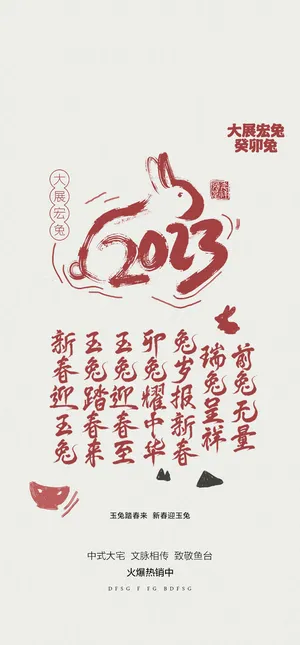 大展宏兔
癸卯兔
大展宏兔
2023
前兔无量
瑞兔呈祥
兔岁报新春
卯兔耀中华
玉兔迎春至
玉兔踏春来
新春迎玉兔
玉兔踏春来 新春迎玉兔
中式大宅 文脉相传 致敬鱼台
火爆热销中
DFSG F FG BDFSG